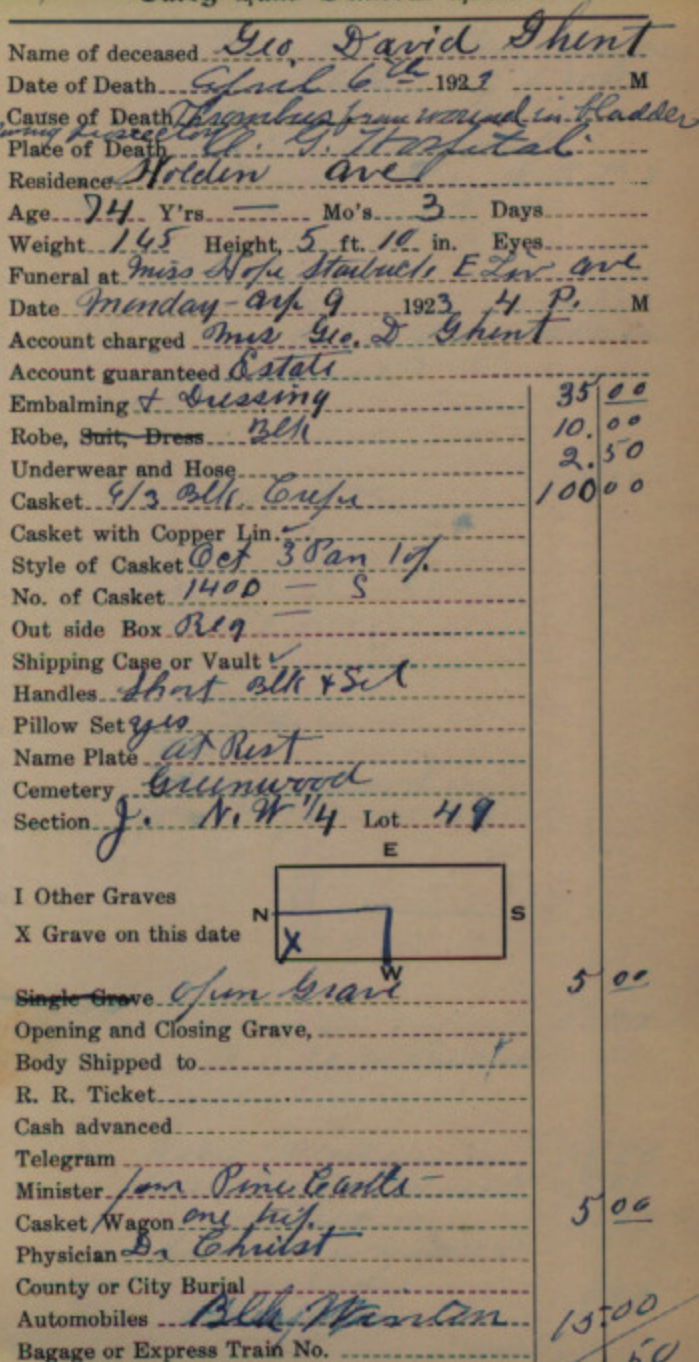 Name of deceased Geo. David Ghent
Date of Death April 6th 192 M
Cause of Death Thrombus from wound in bladder
Place of Death O. G. Hospital
Residence Holden ave
Age 74 Y'rs — Mo's 3 Days
Weight 165 Height, 5 ft. 10 in. Eyes
Funeral at Miss Hope Starbuck, E Liv ave
Date Monday - Ap 9 1923 4 P. M
Account charged Mrs Geo. D Ghent
Account guaranteed Estate
Embalming & Dressing 35 00
Robe, Suit, Dress Blk 10.00
Underwear and Hose 2.50
Casket 6/3 Blk. Crepe 100 00
Casket with Copper Lin.
Style of Casket Oct 3 Pan
No. of Casket 1400 — S
Out side Box Reg
Shipping Case or Vault
Handles Short Blk & Sil
Pillow Set yes
Name Plate at Rest
Cemetery Greenwood
Section J. N. W 1/4 Lot 49
E
I Other Graves
N S
X Grave on this date
X
W
Single Grave Open Grave 5 00
Opening and Closing Grave,
Body Shipped to
R. R. Ticket
Cash advanced
Telegram
Minister from Pine Castle -
Casket Wagon one trip. 5 00
Physician Dr Christ
County or City Burial
Automobiles Blk Winton 15.00
Bagage or Express Train No. 50